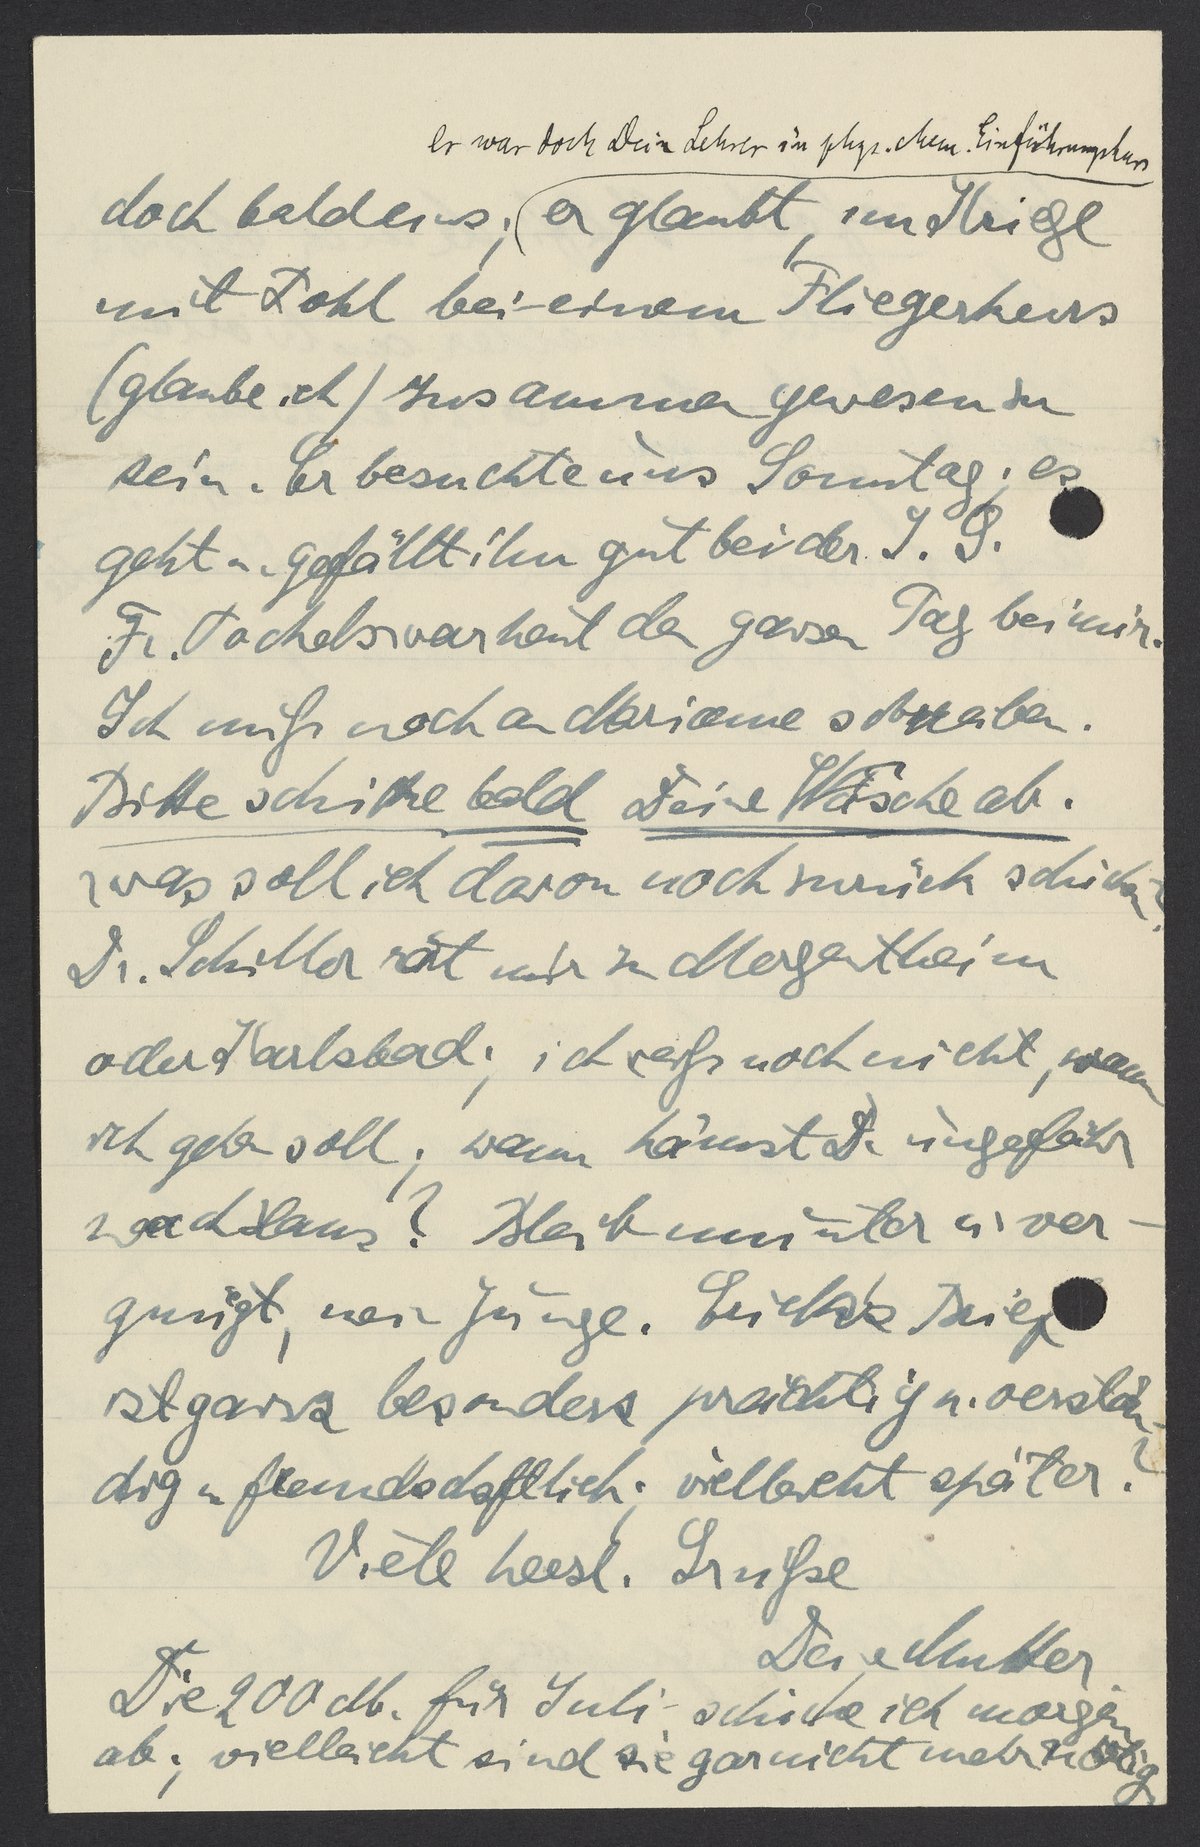 er war doch Dein Lehrer im phys. chem. Einführungskurs
doch bald eins; er glaubt, im Kriege
mit Pohl bei einem Fliegerkurs
(glaube ich) zusammen gewesen zu
sein. Er besuchte uns Sonntag; es
geht u. gefällt ihm gut bei der I. G.
Fr. war heut den ganzen Tag bei mir.
Ich muß noch an Marianne schreiben.
Bitte schicke bald Deine Wäsche ab.
was soll ich davon noch zurück schicken?
Dr. Schiller rät mir zu Mergentheim
oder Karlsbad; ich weiß noch nicht, wann
ich gehen soll; wann kämst Du ungefähr
nach Haus? Bleib munter u. ver-
gnügt, mein Junge. Brief
ist ganz besonders prächtig u. verstän-
dig u. freundschaftlich; vielleicht später?
Viele herzl. Grüße
Deine Mutter
Die 200 M. für Juli schicke ich morgen
ab; vielleicht sind sie gar nicht mehr nötig